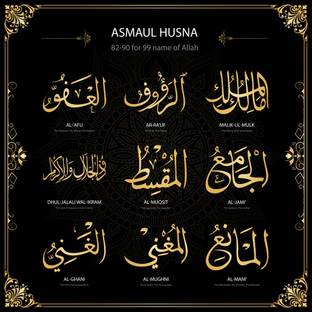 ASMAUL HUSNA
82-90 for 99 name of Allah
العفو
الرؤوف
مالك الملك
AL-'AFU
AR-RA'UF
MALIK-UL-MULK
ذو الجلال والإكرام
المقسط
الجامع
DHUL-JALALI WAL-IKRAM
AL-MUQSIT
AL-JAMI'
الغني
المغني
المانع
AL-GHANI
AL-MUGHNI
AL-MANI'